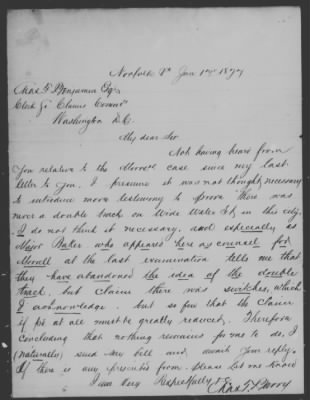 Norfolk Va Jan 17th 1877
Chas F Benjamin Esqr
Clerk So Claims Commn
Washington D.C.
My dear Sir
Not having heard from
you relative to the Morrell case since my last
letter to you. I presume it was not thought necessary
to introduce more testimony to prove there was
never a double track on Wide Water St, in this city.
I do not think it necessary, and especially as
Major Baker, who appeared here as counsel for
Morrell at the last examination tells me that
they have abandoned the idea of the double
track, but claim there was switches, which
I acknowledge. but so few that the claim
if pd at all must be greatly reduced. Therefore
concluding that nothing remains for me to do, I
(naturally) send my bill and await your reply.
If there is any expected from please let me know
I am Very Respectfully
Chas